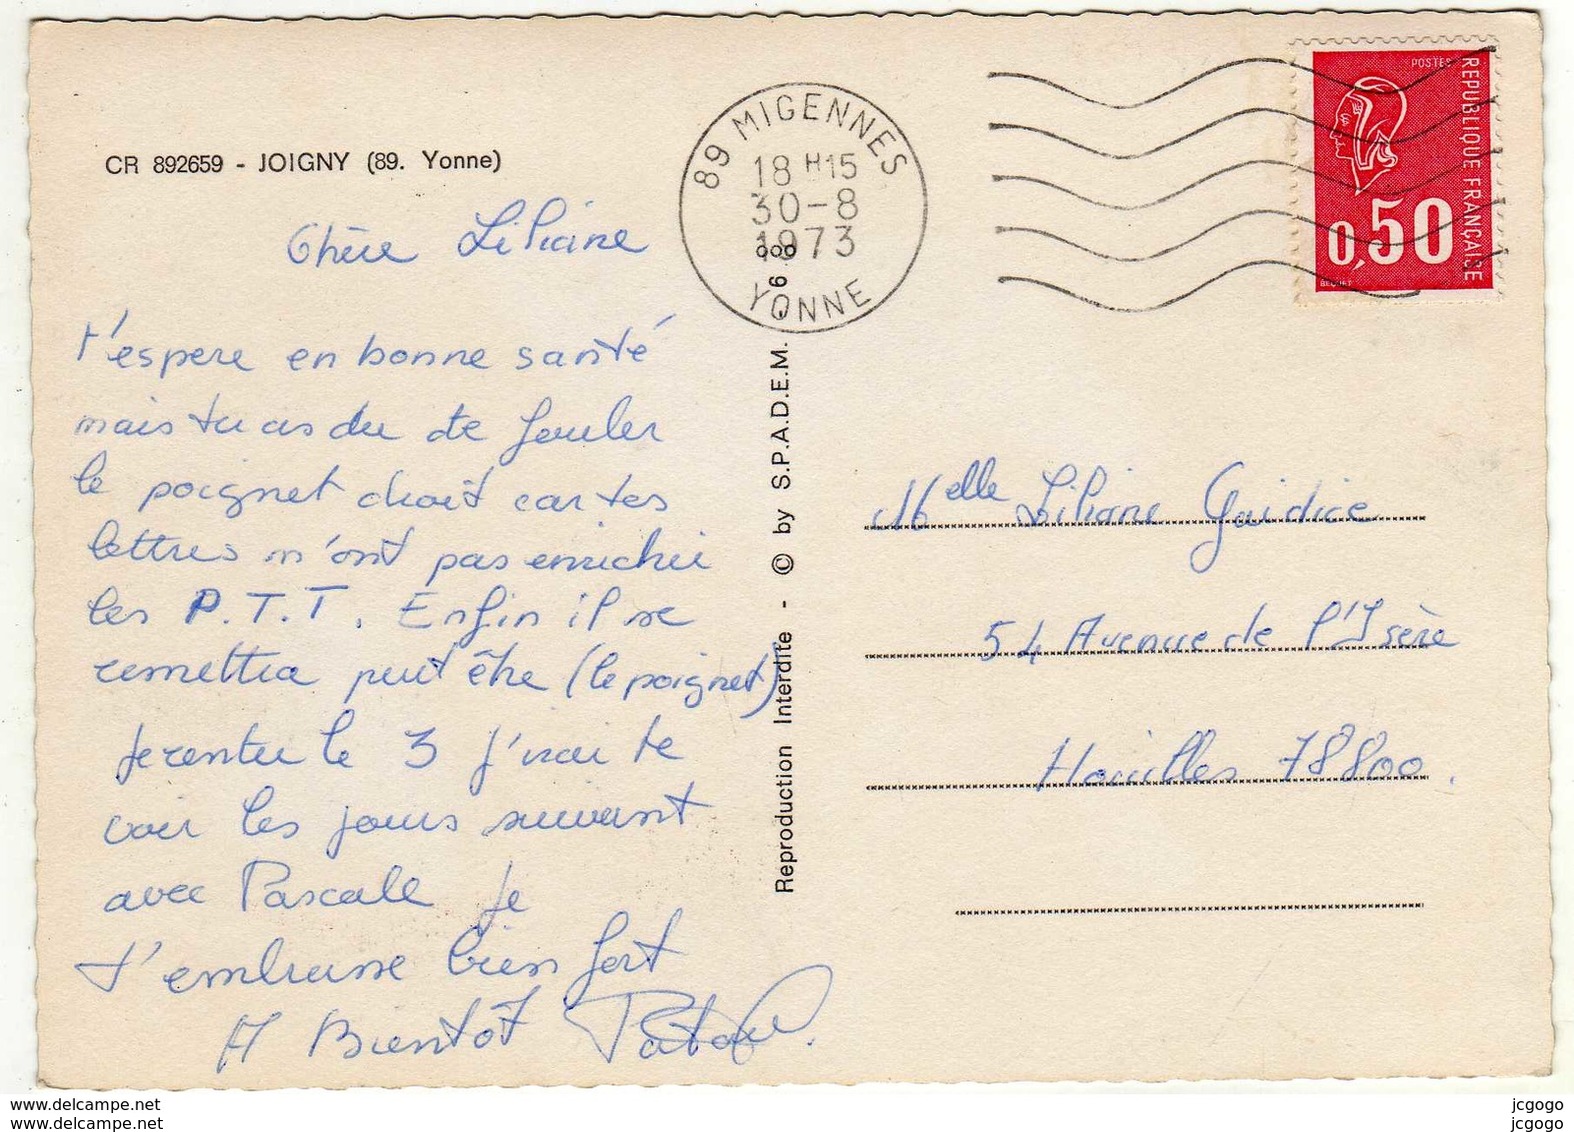 CR 892659 - JOIGNY (89. Yonne)
Chère Liliane
t'espere en bonne santé
mais tu as du te fouler
le poignet droit cartes
lettres n'ont pas enrichi
les P.T.T. Enfin il se
remettra peut être (le poignet)
Je rentre le 3 j'irai te
voir les jours suivant
avec Pascale Je
t'embrasse bien fort
A Bientôt
89 MIGENNES
18 H15
30-8
1973
YONNE
Reproduction Interdite - © by S.P.A.D.E.M.
POSTES
REPUBLIQUE FRANÇAISE
0,50
BEQUET
Melle Liliane Guidice
54 Avenue de l'Isère
Houilles 78800.
www.delcampe.net
www.delcampe.net
jcgogo
jcgogo